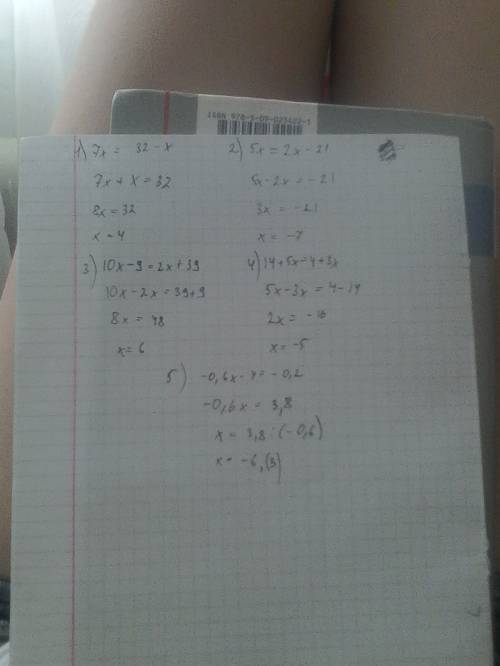 ISBN 978-5-09-025422-1
1) 7x = 32 - x
7x + x = 32
8x = 32
x = 4
2) 5x = 2x - 21
5x - 2x = -21
3x = -21
x = -7
3) 10x - 9 = 2x + 39
10x - 2x = 39 + 9
8x = 48
x = 6
4) 14 + 5x = 4 + 3x
5x - 3x = 4 - 14
2x = -10
x = -5
5) -0,6x - 4 = -0,2
-0,6x = 3,8
x = 3,8 : (-0,6)
x = -6,(3)